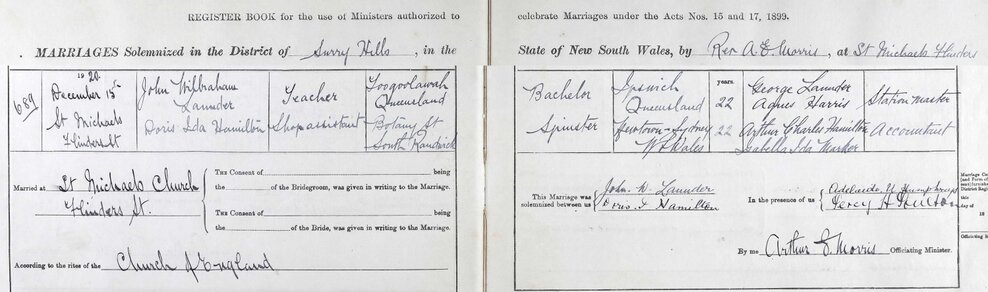 REGISTER BOOK for the use of Ministers authorized to celebrate Marriages under the Acts Nos. 15 and 17, 1899.
. MARRIAGES Solemnized in the District of Surry Hills, in the State of New South Wales, by Rev A. E. Morris, at St Michaels Flinders
689
1920.
December 15
St Michaels
Flinders St
John Wilbraham
Launder
Doris Ida Hamilton
Teacher
Shop assistant
Toogoolawah
Queensland
Botany St
South Randwick
Bachelor
Spinster
Ipswich
Queensland
Newtown - Sydney
years.
22
22
George Launder
Agnes Harris
Arthur Charles Hamilton
Isabella Ida Marker
Station-master
Accountant
Married at St Michaels Church
Flinders St.
THE Consent of being
the of the Bridegroom, was given in writing to the Marriage.
THE Consent of being
the of the Bride, was given in writing to the Marriage.
According to the rites of the Church of England
This Marriage was
solemnized between us
John W. Launder
Doris I Hamilton
In the presence of us
Adelaide
Percy H
By me Arthur E. Morris Officiating Minister.
Marriage
(and Form of
District Regi
this
day of
18